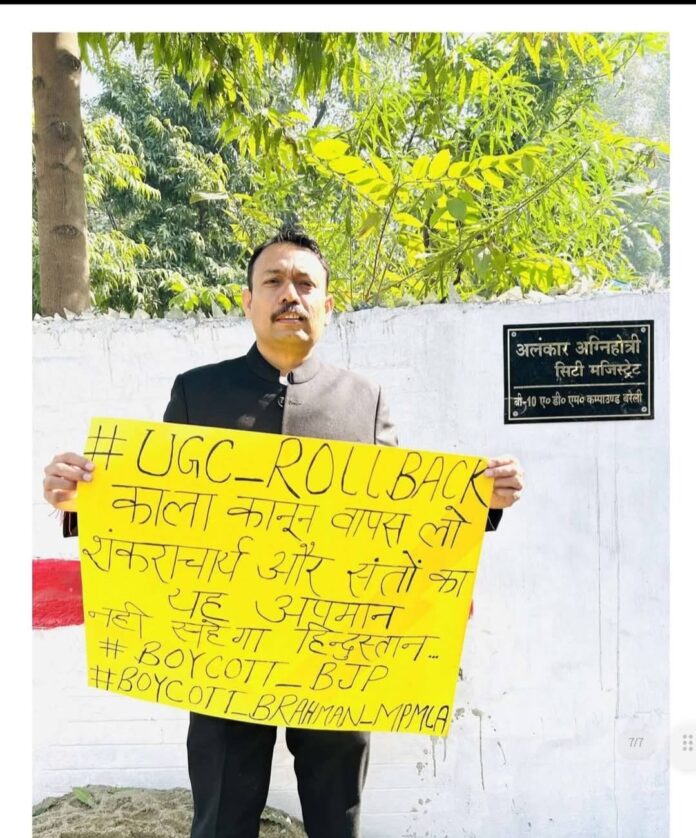 अलंकार अग्निहोत्री
सिटी मजिस्ट्रेट
बी-10 ए० डी० एम० कम्पाउण्ड बरेली
# UGC_ROLLBACK
काला कानून वापस लो
शंकराचार्य और संतों का
यह अपमान
नही सहेगा हिन्दुस्तान...
# BOYCOTT_BJP
#BOYCOTT_BRAHMAN_MPMLA
7/7